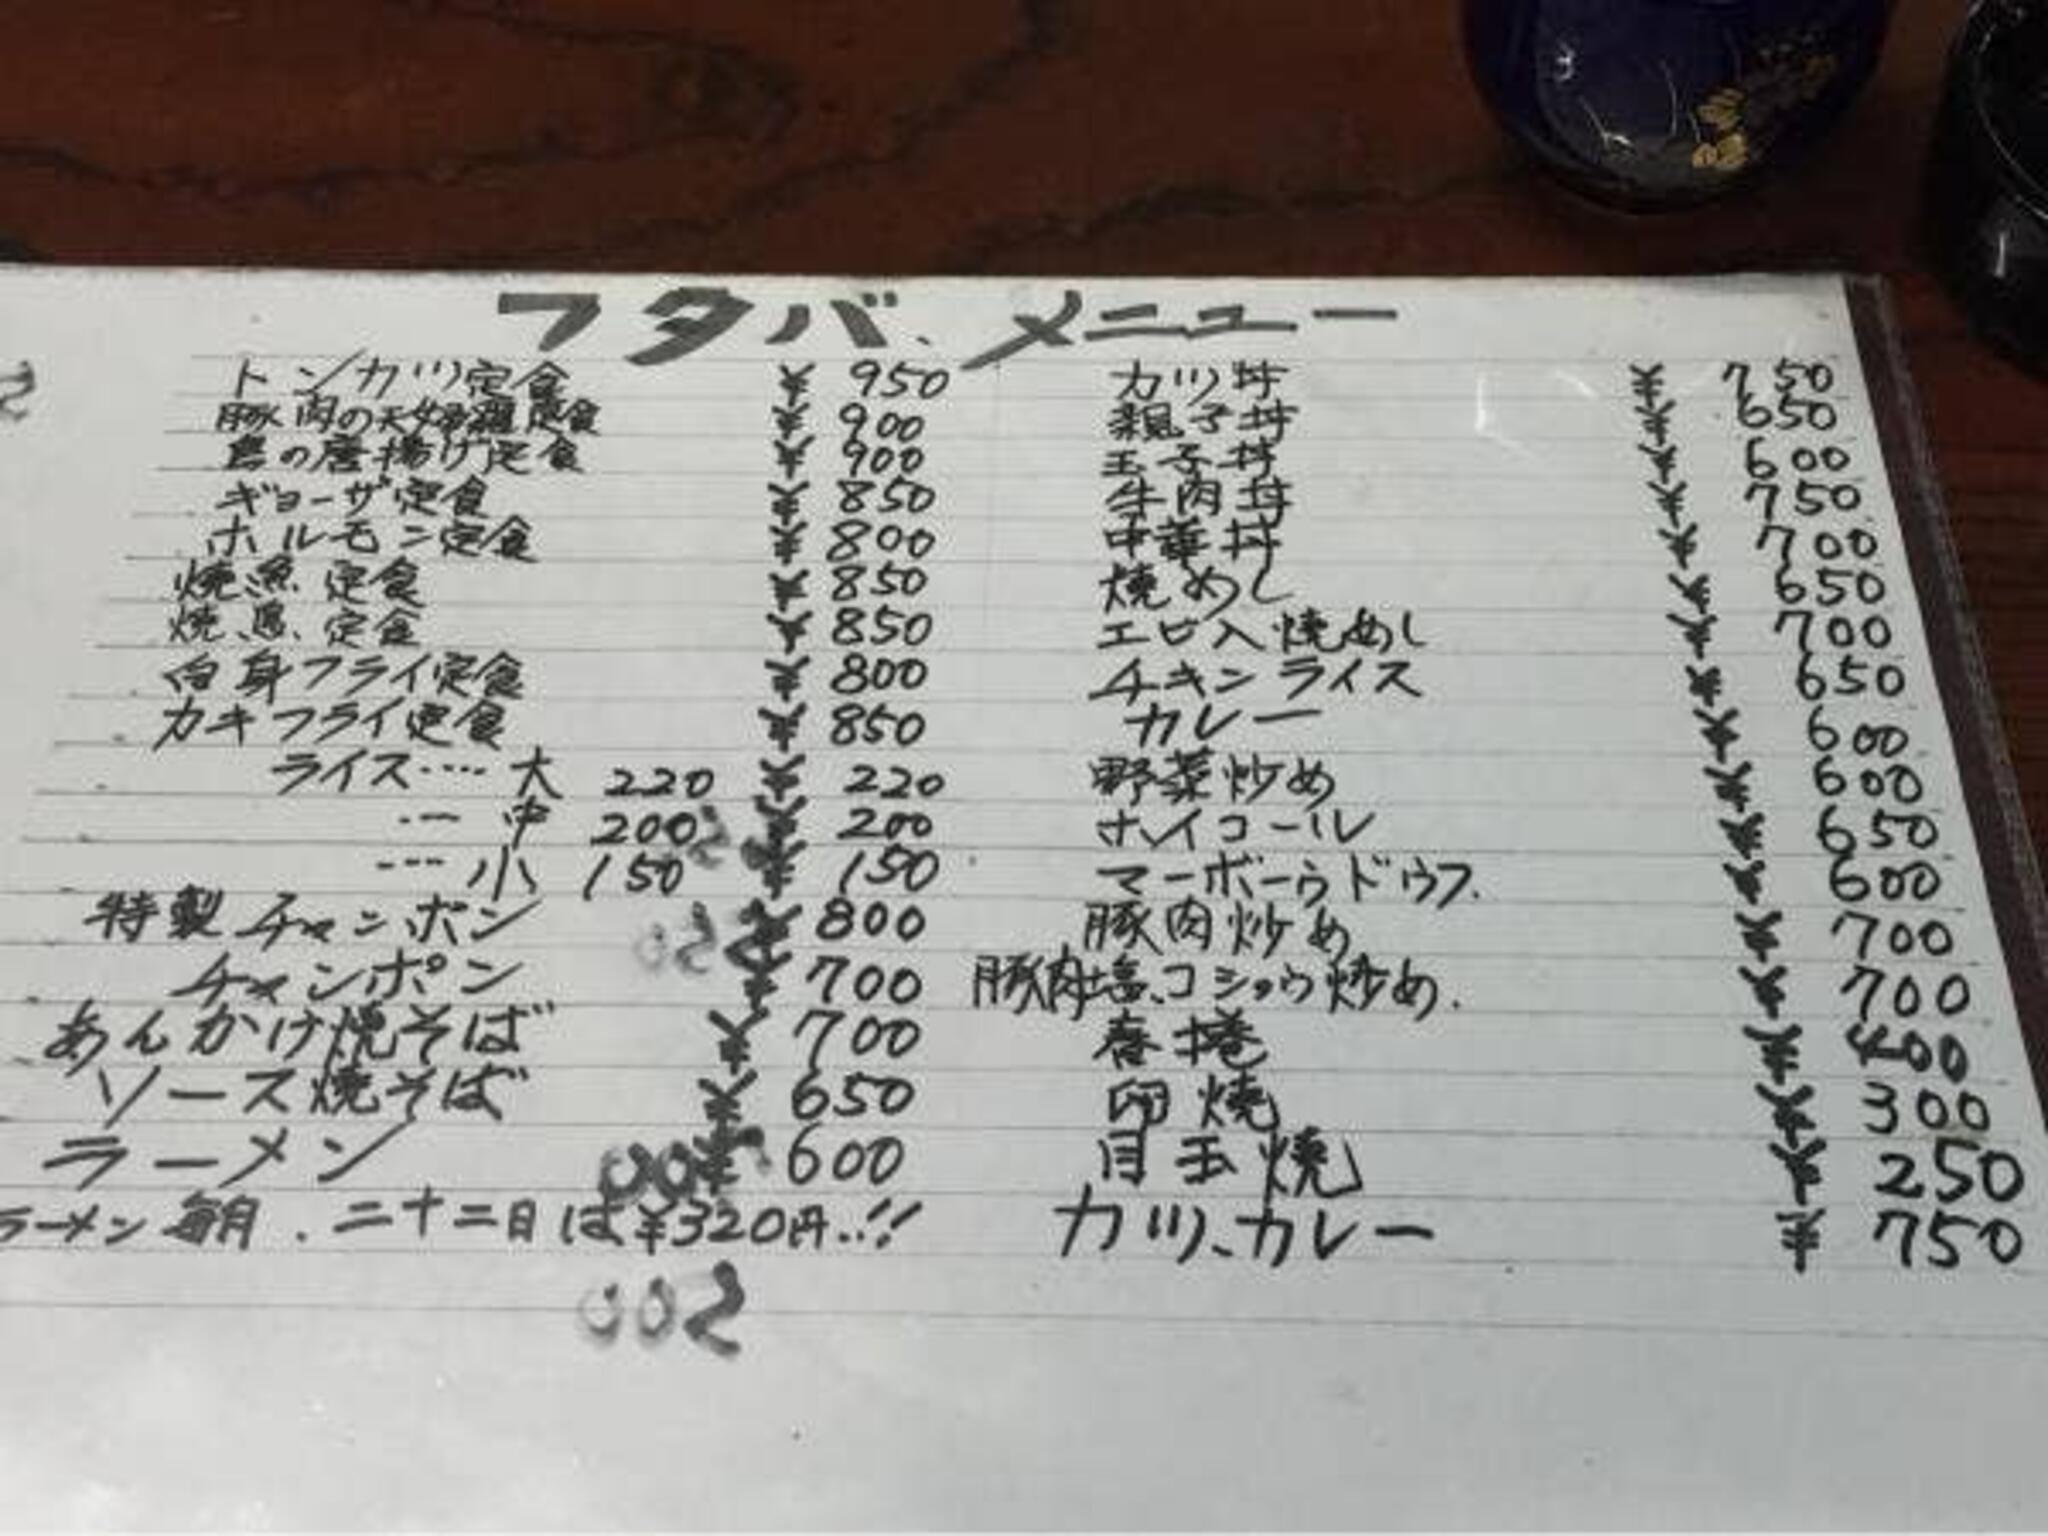 フタバ、メニュー
トンカツ定食 ¥ 950
豚肉の天婦羅定食 ¥ 900
鳥の唐揚げ定食 ¥ 900
ギョーザ定食 ¥ 850
ホルモン定食 ¥ 800
焼魚 定食 ¥ 850
焼 定食 ¥ 850
白身フライ定食 ¥ 800
カキフライ定食 ¥ 850
ライス‥‥大 220 ¥ 220
中 200 ¥ 200
小 150 ¥ 150
特製チャンポン ¥ 800
チャンポン ¥ 700
あんかけ焼そば ¥ 700
ソース焼そば ¥ 650
ラーメン ¥ 600
ラーメン 毎月.二十二日は¥320円..!!
カツ丼 ¥ 750
親子丼 ¥ 650
玉子丼 ¥ 600
牛肉丼 ¥ 750
中華丼 ¥ 700
焼めし ¥ 650
エビ入焼めし ¥ 700
チキンライス ¥ 650
カレー ¥ 600
野菜炒め ¥ 600
ホイコール ¥ 650
マーボーゥドウフ. ¥ 600
豚肉炒め ¥ 700
豚肉塩、コショウ炒め. ¥ 700
春捲 ¥ 400
卵焼 ¥ 300
目玉焼 ¥ 250
カツ、カレー ¥ 750